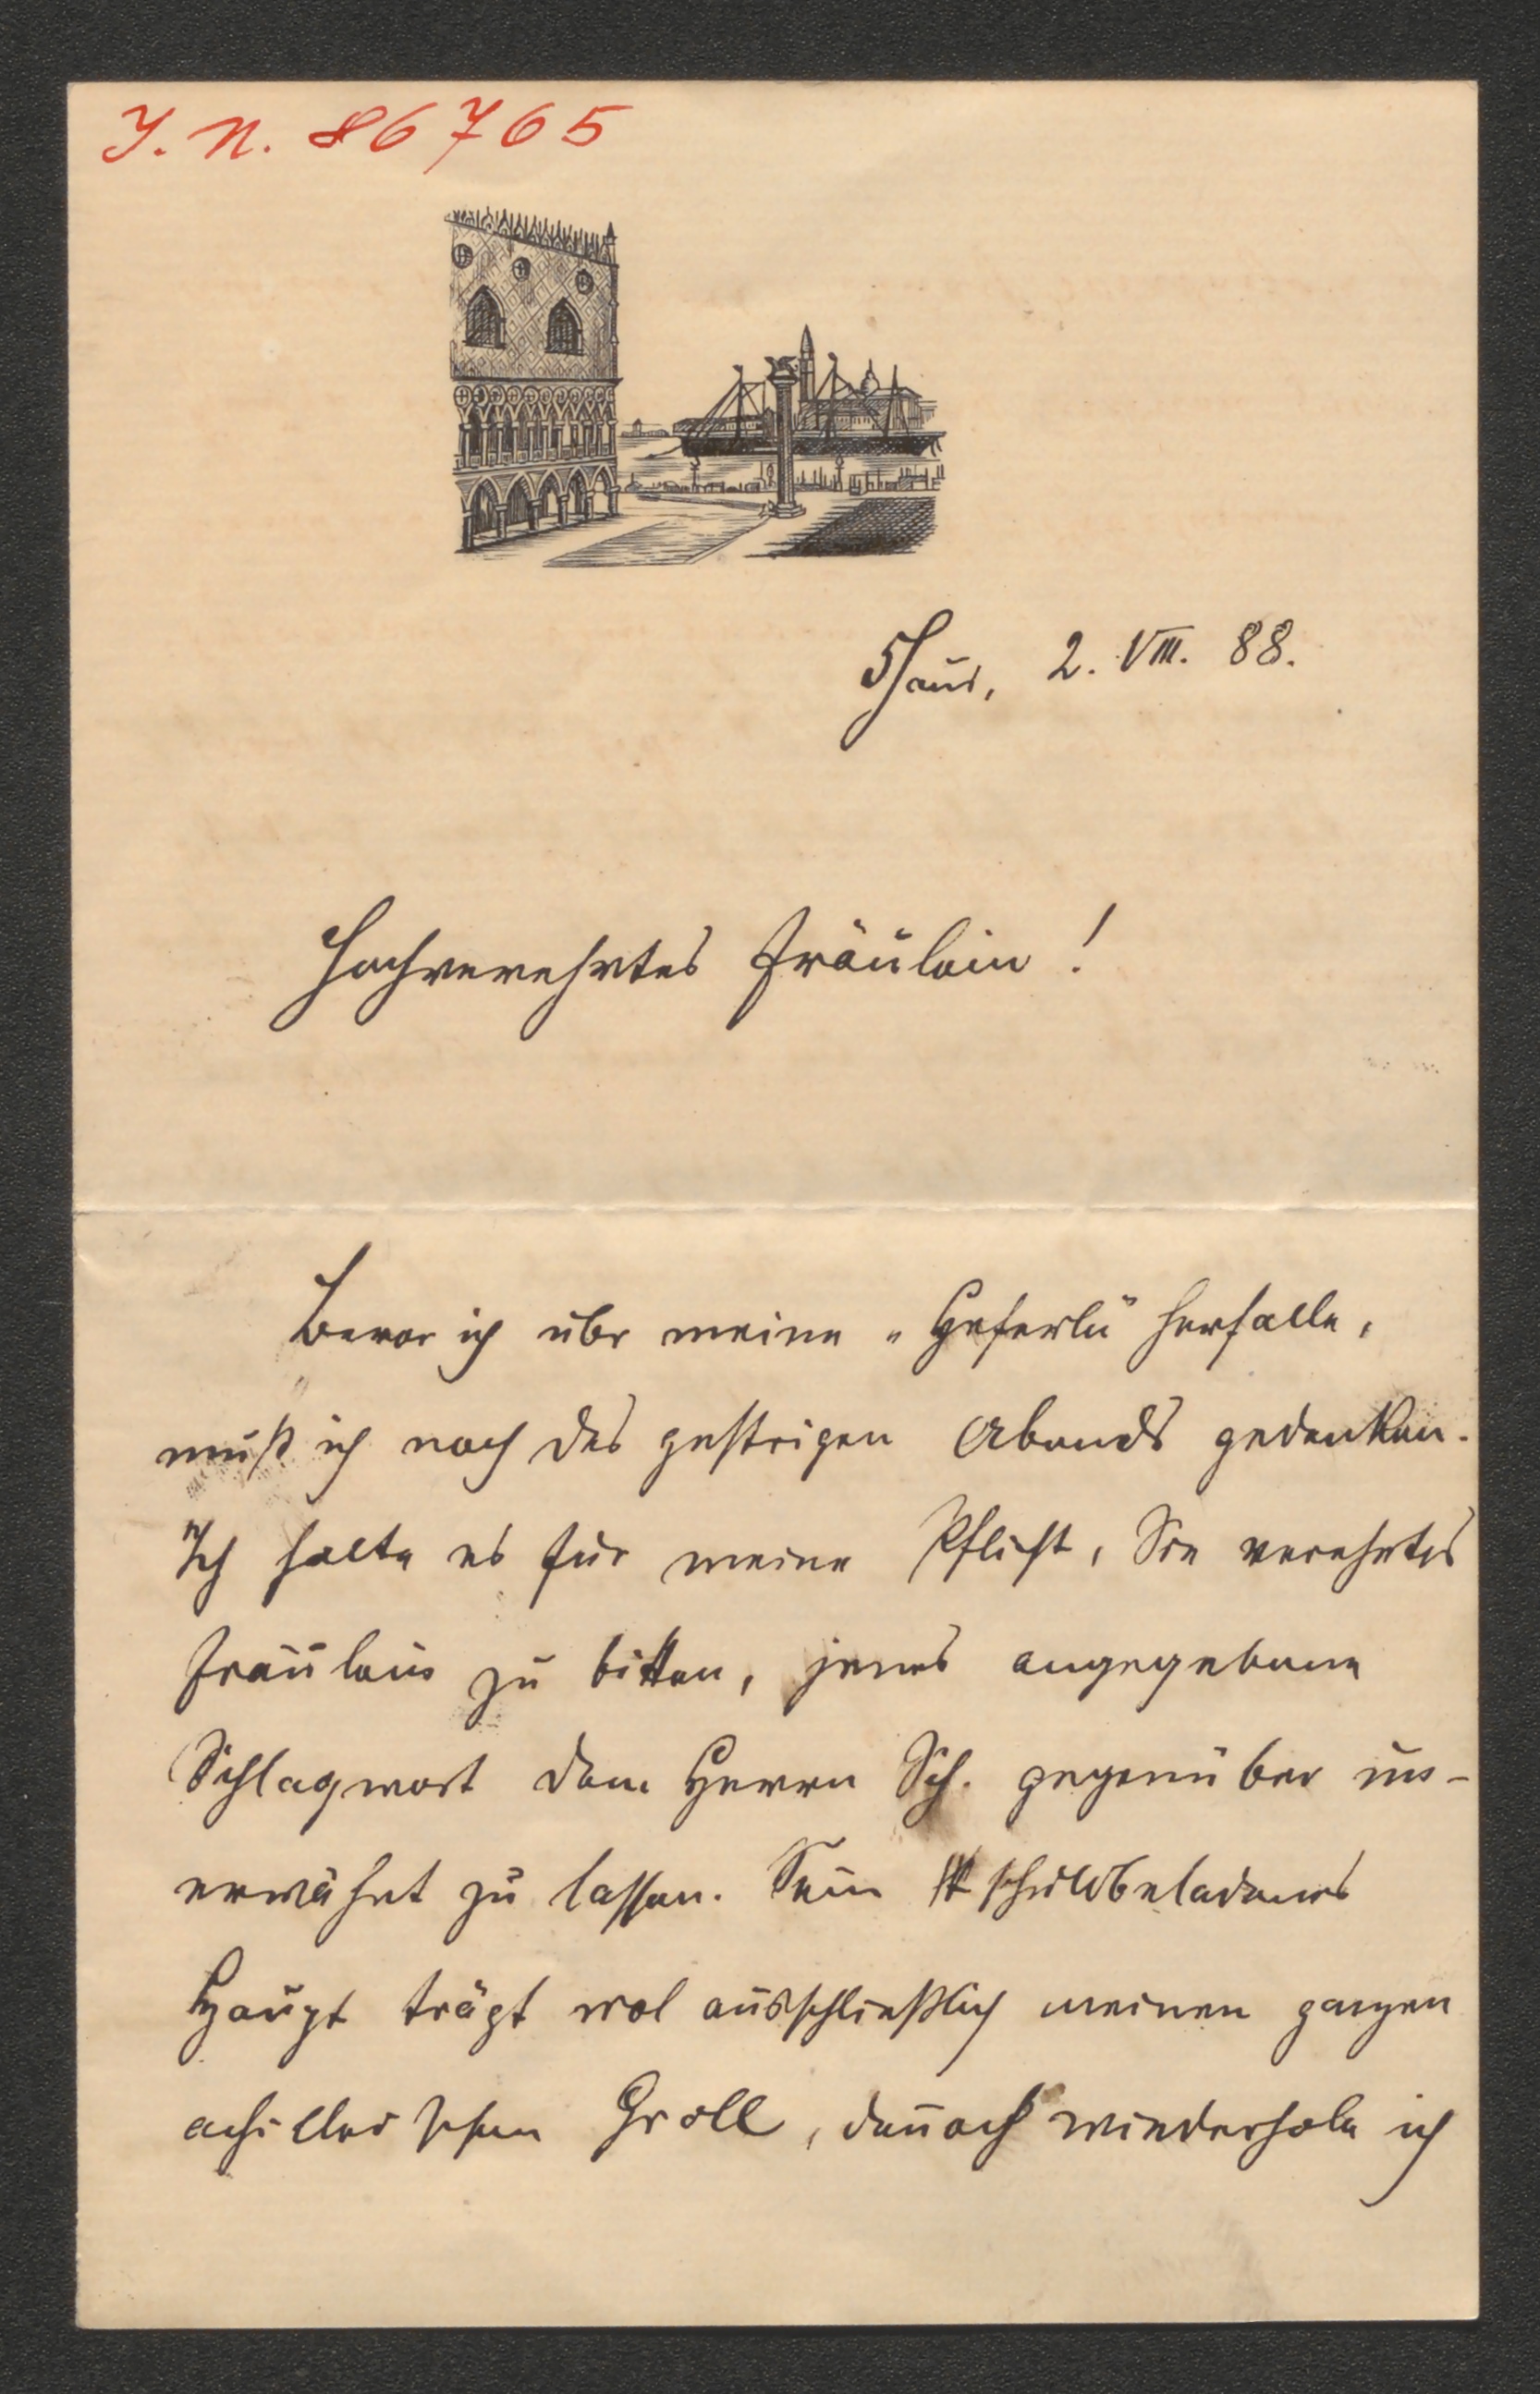 I. N. 86765
5Haus, 2. VIII. 88.
Hochverehrtes Fräulein!
Bevor ich über meine „Heferln" herfalle,
muß ich noch des gestrigen Abends gedenken.
Ich halte es für meine Pflicht, Sie verehrtes
Fräulein zu bitten, jenes angegebene
Schlagwort dem Herrn Sch. gegenüber un-
erwähnt zu lassen. Sein schuldbeladenes
Haupt trägt wol ausschließlich meinen ganzen
achilleischen Groll, den̄och wiederhole ich